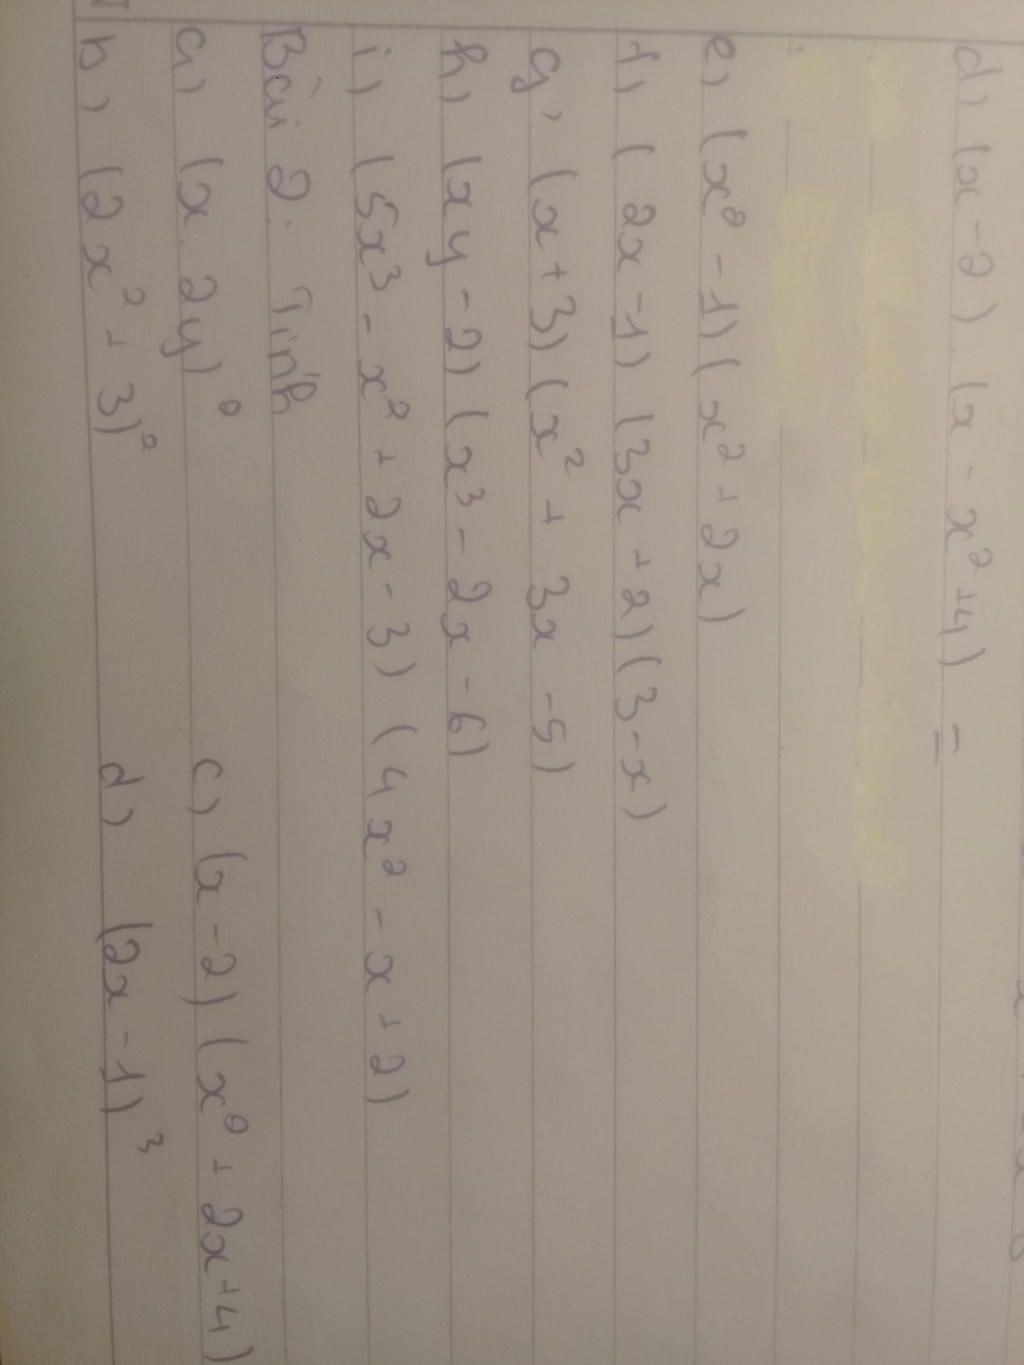 d) (x - 2). (x - x² + 4) =
e) (x² - 1) (x² + 2x)
f) ( 2x - 1) (3x + 2) (3 - x)
g) (x + 3) (x² + 3x - 5)
h) (xy - 2) (x³ - 2x - 6)
i) (5x³ - x² + 2x - 3) ( 4x² - x + 2)
Bài 2: Tính
a) (x. 2y)² c) (x - 2) (x² + 2x + 4)
b) (2x² + 3)² d) (2x - 1)³